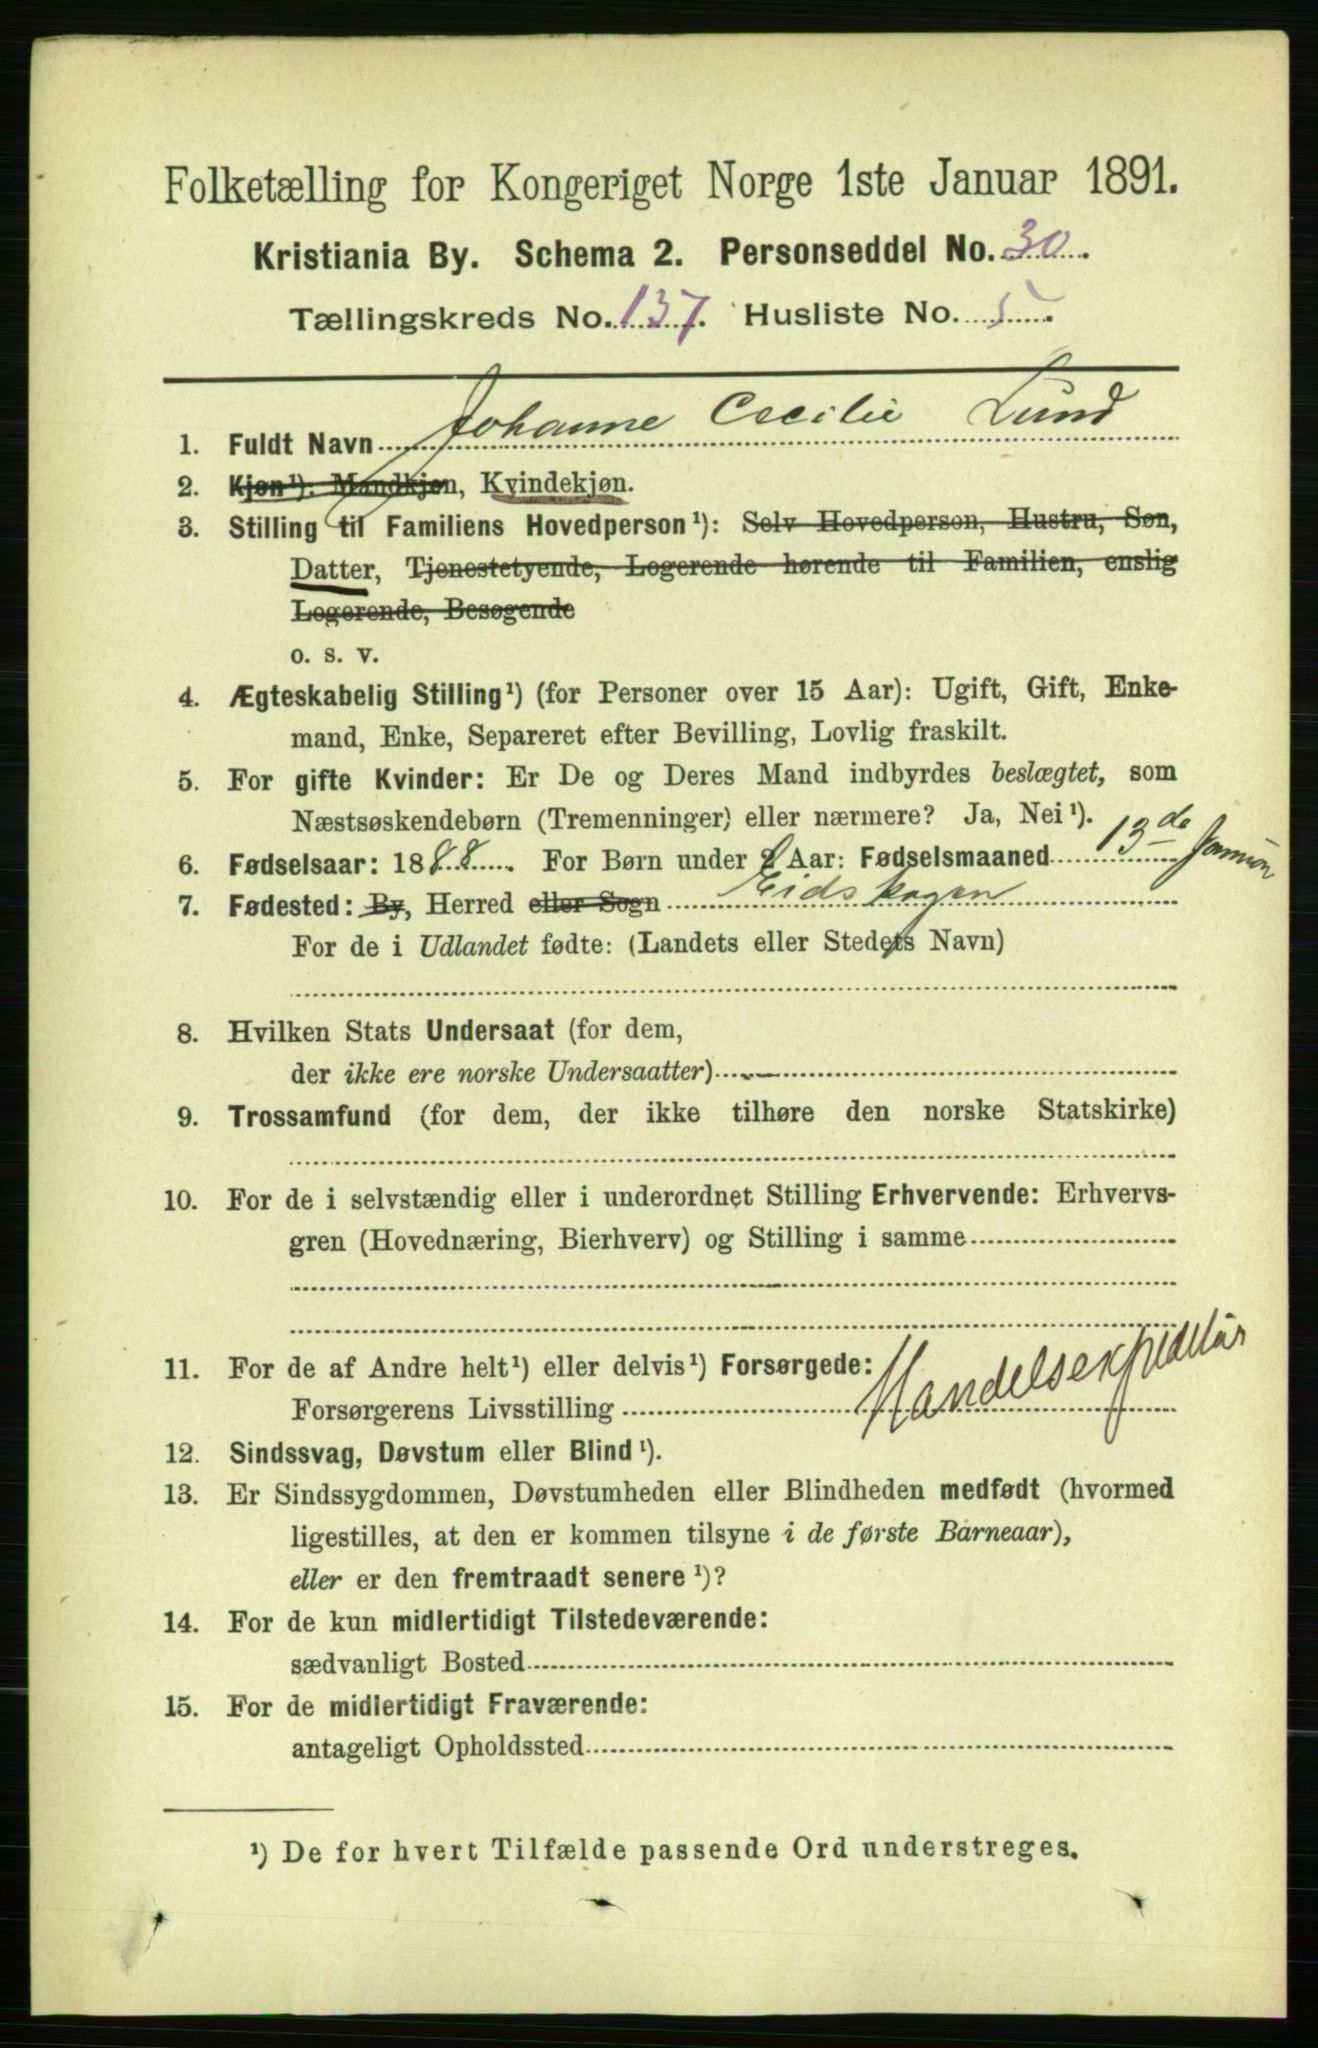 Folketælling for Kongeriget Norge 1ste Januar 1891.
Kristiania By. Schema 2. Personseddel No. 30.
Tællingskreds No. 137. Husliste No. 5.
1. Fuldt Navn Johanne Cecilie Lund
2. Kjøn¹): Mandkjøn, Kvindekjøn.
3. Stilling til Familiens Hovedperson¹): Selv Hovedperson, Hustru, Søn,
Datter, Tjenestetyende, Logerende hørende til Familien, enslig
Logerende, Besøgende
o. s. v.
4. Ægteskabelig Stilling¹) (for Personer over 15 Aar): Ugift, Gift, Enke-
mand, Enke, Separeret efter Bevilling, Lovlig fraskilt.
5. For gifte Kvinder: Er De og Deres Mand indbyrdes beslægtet, som
Næstsøskendebørn (Tremenninger) eller nærmere? Ja, Nei¹).
6. Fødselsaar: 1888. For Børn under 2 Aar: Fødselsmaaned 13de Januar
7. Fødested: By, Herred eller Sogn Eidskogen
For de i Udlandet fødte: (Landets eller Stedets Navn)
8. Hvilken Stats Undersaat (for dem,
der ikke ere norske Undersaatter)
9. Trossamfund (for dem, der ikke tilhøre den norske Statskirke)
10. For de i selvstændig eller i underordnet Stilling Erhvervende: Erhvervs-
gren (Hovednæring, Bierhverv) og Stilling i samme
11. For de af Andre helt¹) eller delvis¹) Forsørgede:
Forsørgerens Livsstilling Handelsexpeditør
12. Sindssvag, Døvstum eller Blind¹).
13. Er Sindssygdommen, Døvstumheden eller Blindheden medfødt (hvormed
ligestilles, at den er kommen tilsyne i de første Barneaar),
eller er den fremtraadt senere¹)?
14. For de kun midlertidigt Tilstedeværende:
sædvanligt Bosted
15. For de midlertidigt Fraværende:
antageligt Opholdssted
¹) De for hvert Tilfælde passende Ord understreges.